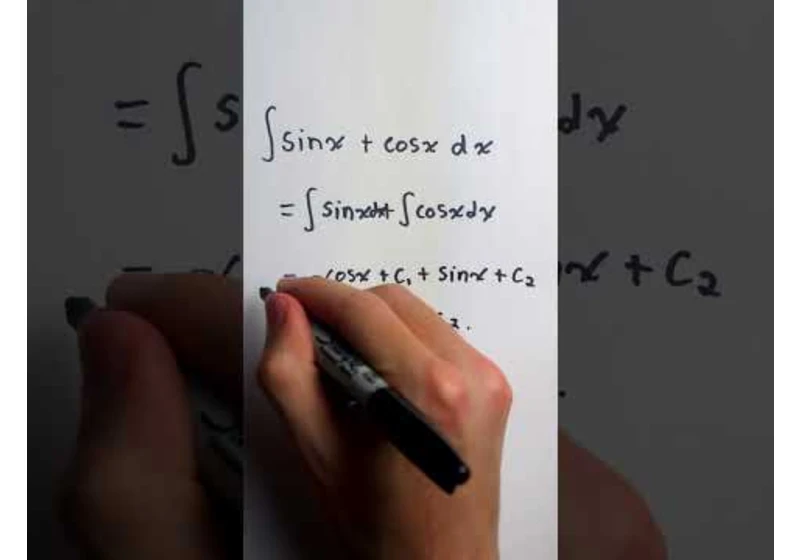 ∫ sinx + cosx dx
= ∫ sinxdx + ∫ cosxdx
= -cosx + C₁ + sinx + C₂